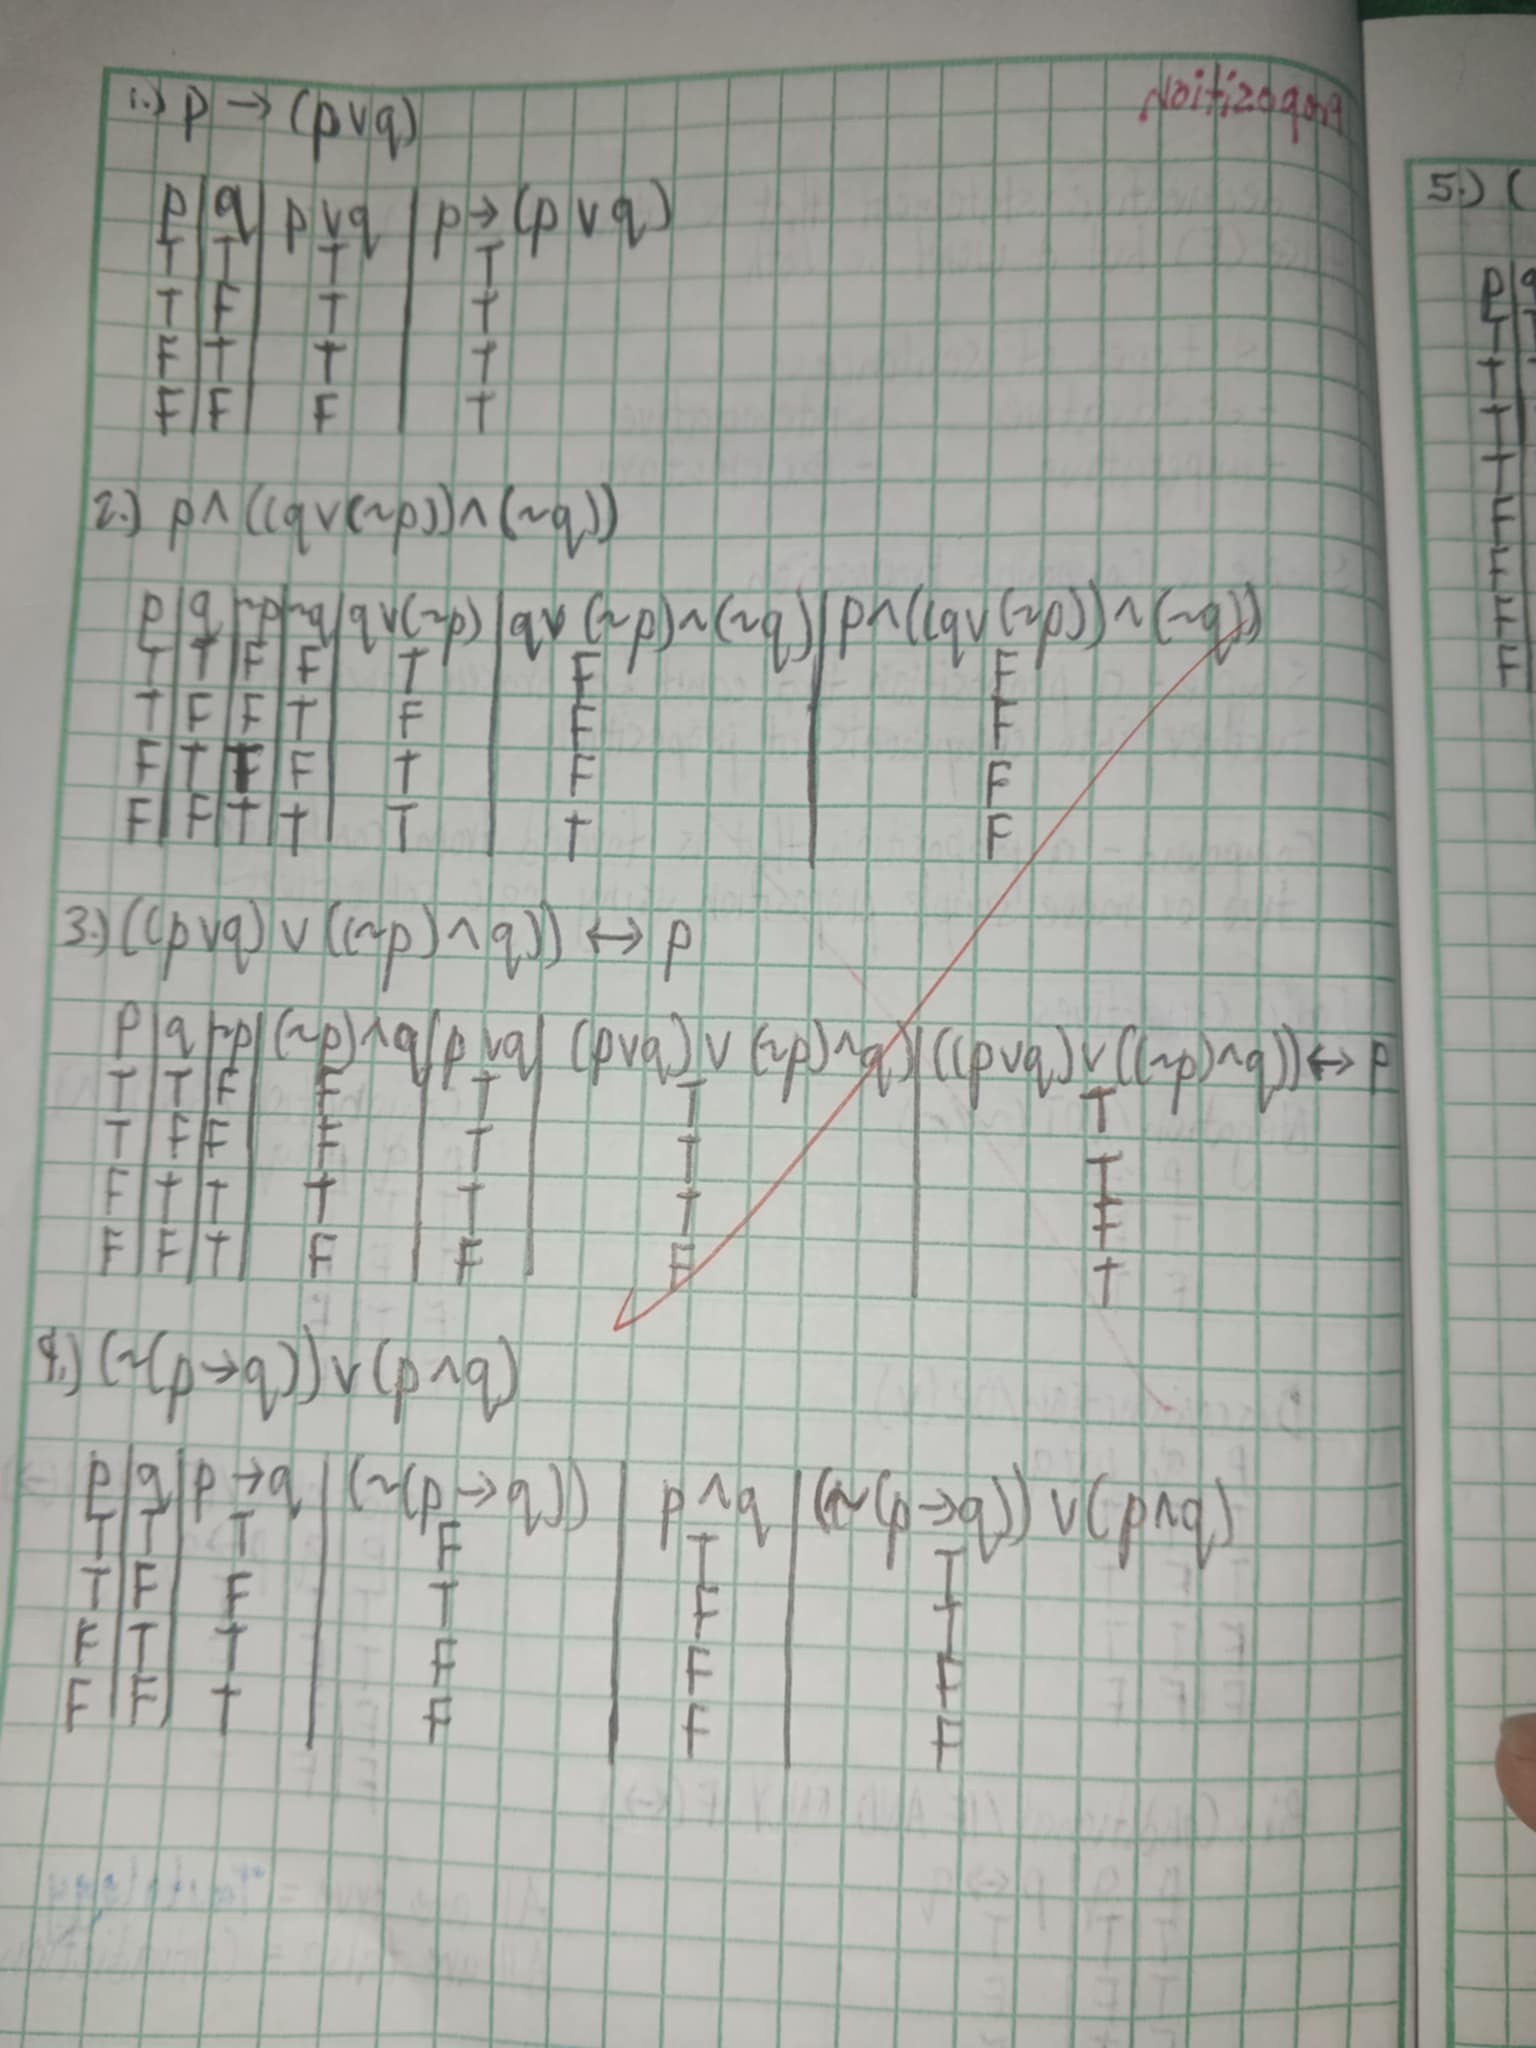 1.) p → (p∨q)
p | q | p∨q | p→(p∨q)
T | T | T | T
T | F | T | T
F | T | T | T
F | F | F | T
2.) p∧((q∨(~p))∧(~q))
p | q | ~p | ~q | q∨(~p) | q∨(~p)∧(~q) | p∧((q∨(~p))∧(~q))
T | T | F | F | T | F | F
T | F | F | T | F | F | F
F | T | T | F | T | F | F
F | F | T | T | T | T | F
3.) ((p∨q) ∨ ((~p)∧q)) ↔ p
p | q | ~p | (~p)∧q | p∨q | (p∨q)∨(~p)∧q) | ((p∨q)∨((~p)∧q)) ↔ p
T | T | F | F | T | T | T
T | F | F | F | T | T | T
F | T | T | T | T | T | F
F | F | T | F | F | F | T
4.) (~(p→q))∨(p∧q)
p | q | p→q | (~(p→q)) | p∧q | (~(p→q))∨(p∧q)
T | T | T | F | T | T
T | F | F | T | F | T
F | T | T | F | F | F
F | F | T | F | F | F
5.) (
p | q
T | T
T
T
T
F
F
F
F